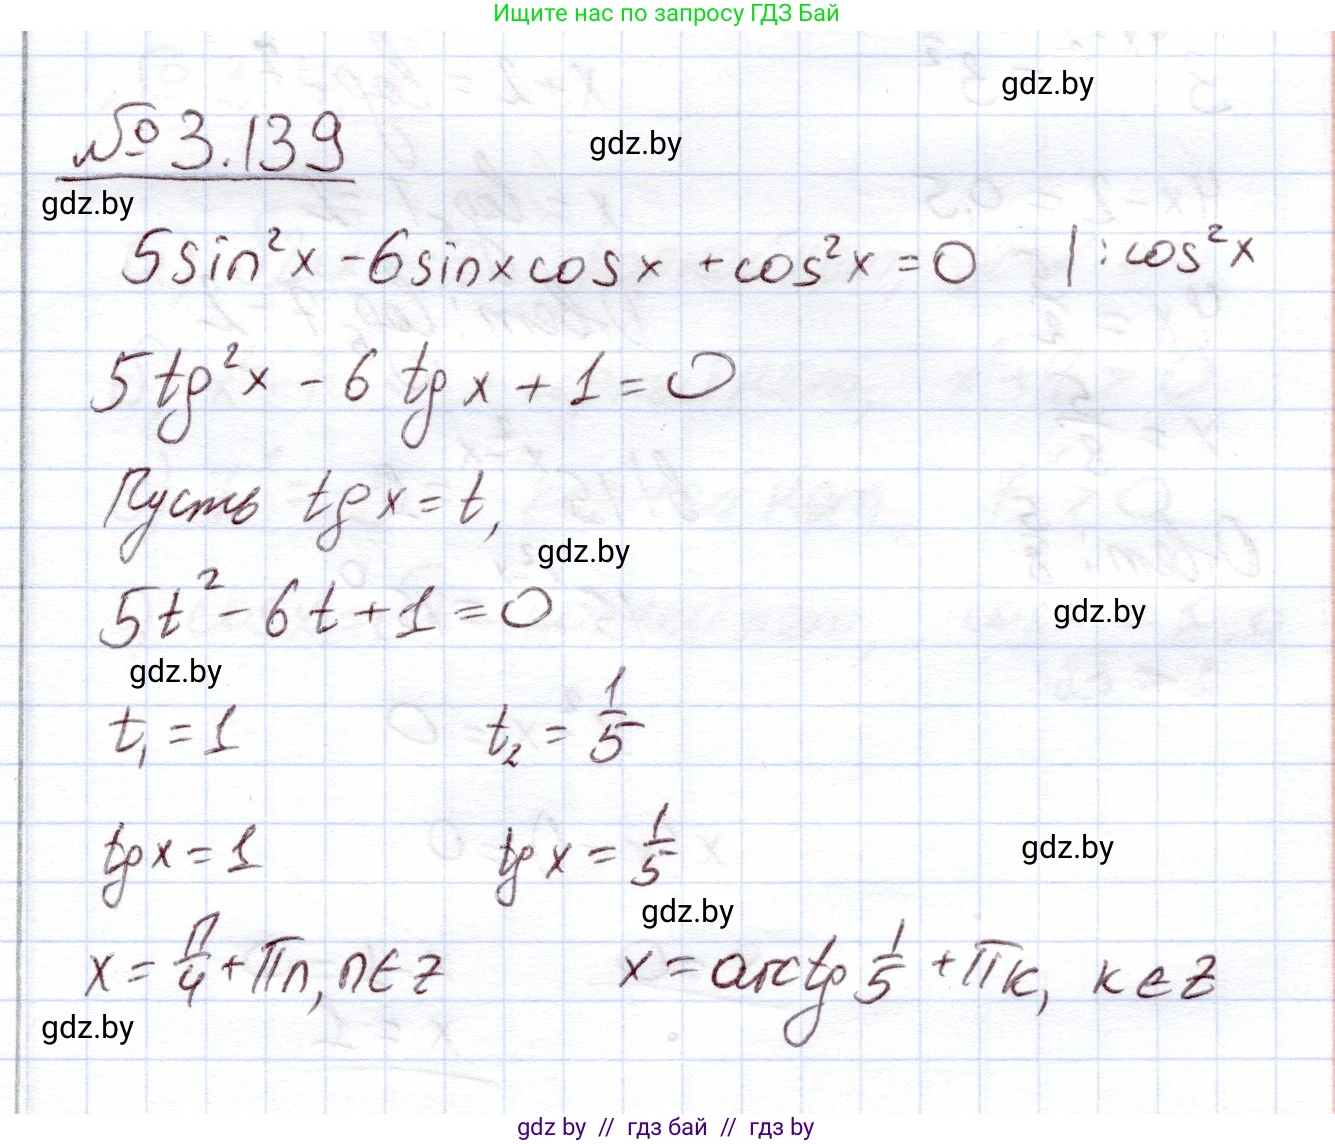 Ищите нас по запросу ГДЗ Бай
gdz.by
№ 3.139
gdz.by
gdz.by
5sin²x - 6sinxcosx + cos²x = 0 | : cos²x
5tg²x - 6 tg x + 1 = 0
Пусть tg x = t,
gdz.by
5t² - 6t + 1 = 0
gdz.by
gdz.by
t₁ = 1 t₂ = 1/5
tg x = 1 tg x = 1/5
gdz.by
gdz.by
x = π/4 + πn, n∈z x = arctg 1/5 + πк, к∈z
gdz.by
gdz by // гдз бай // гдз by